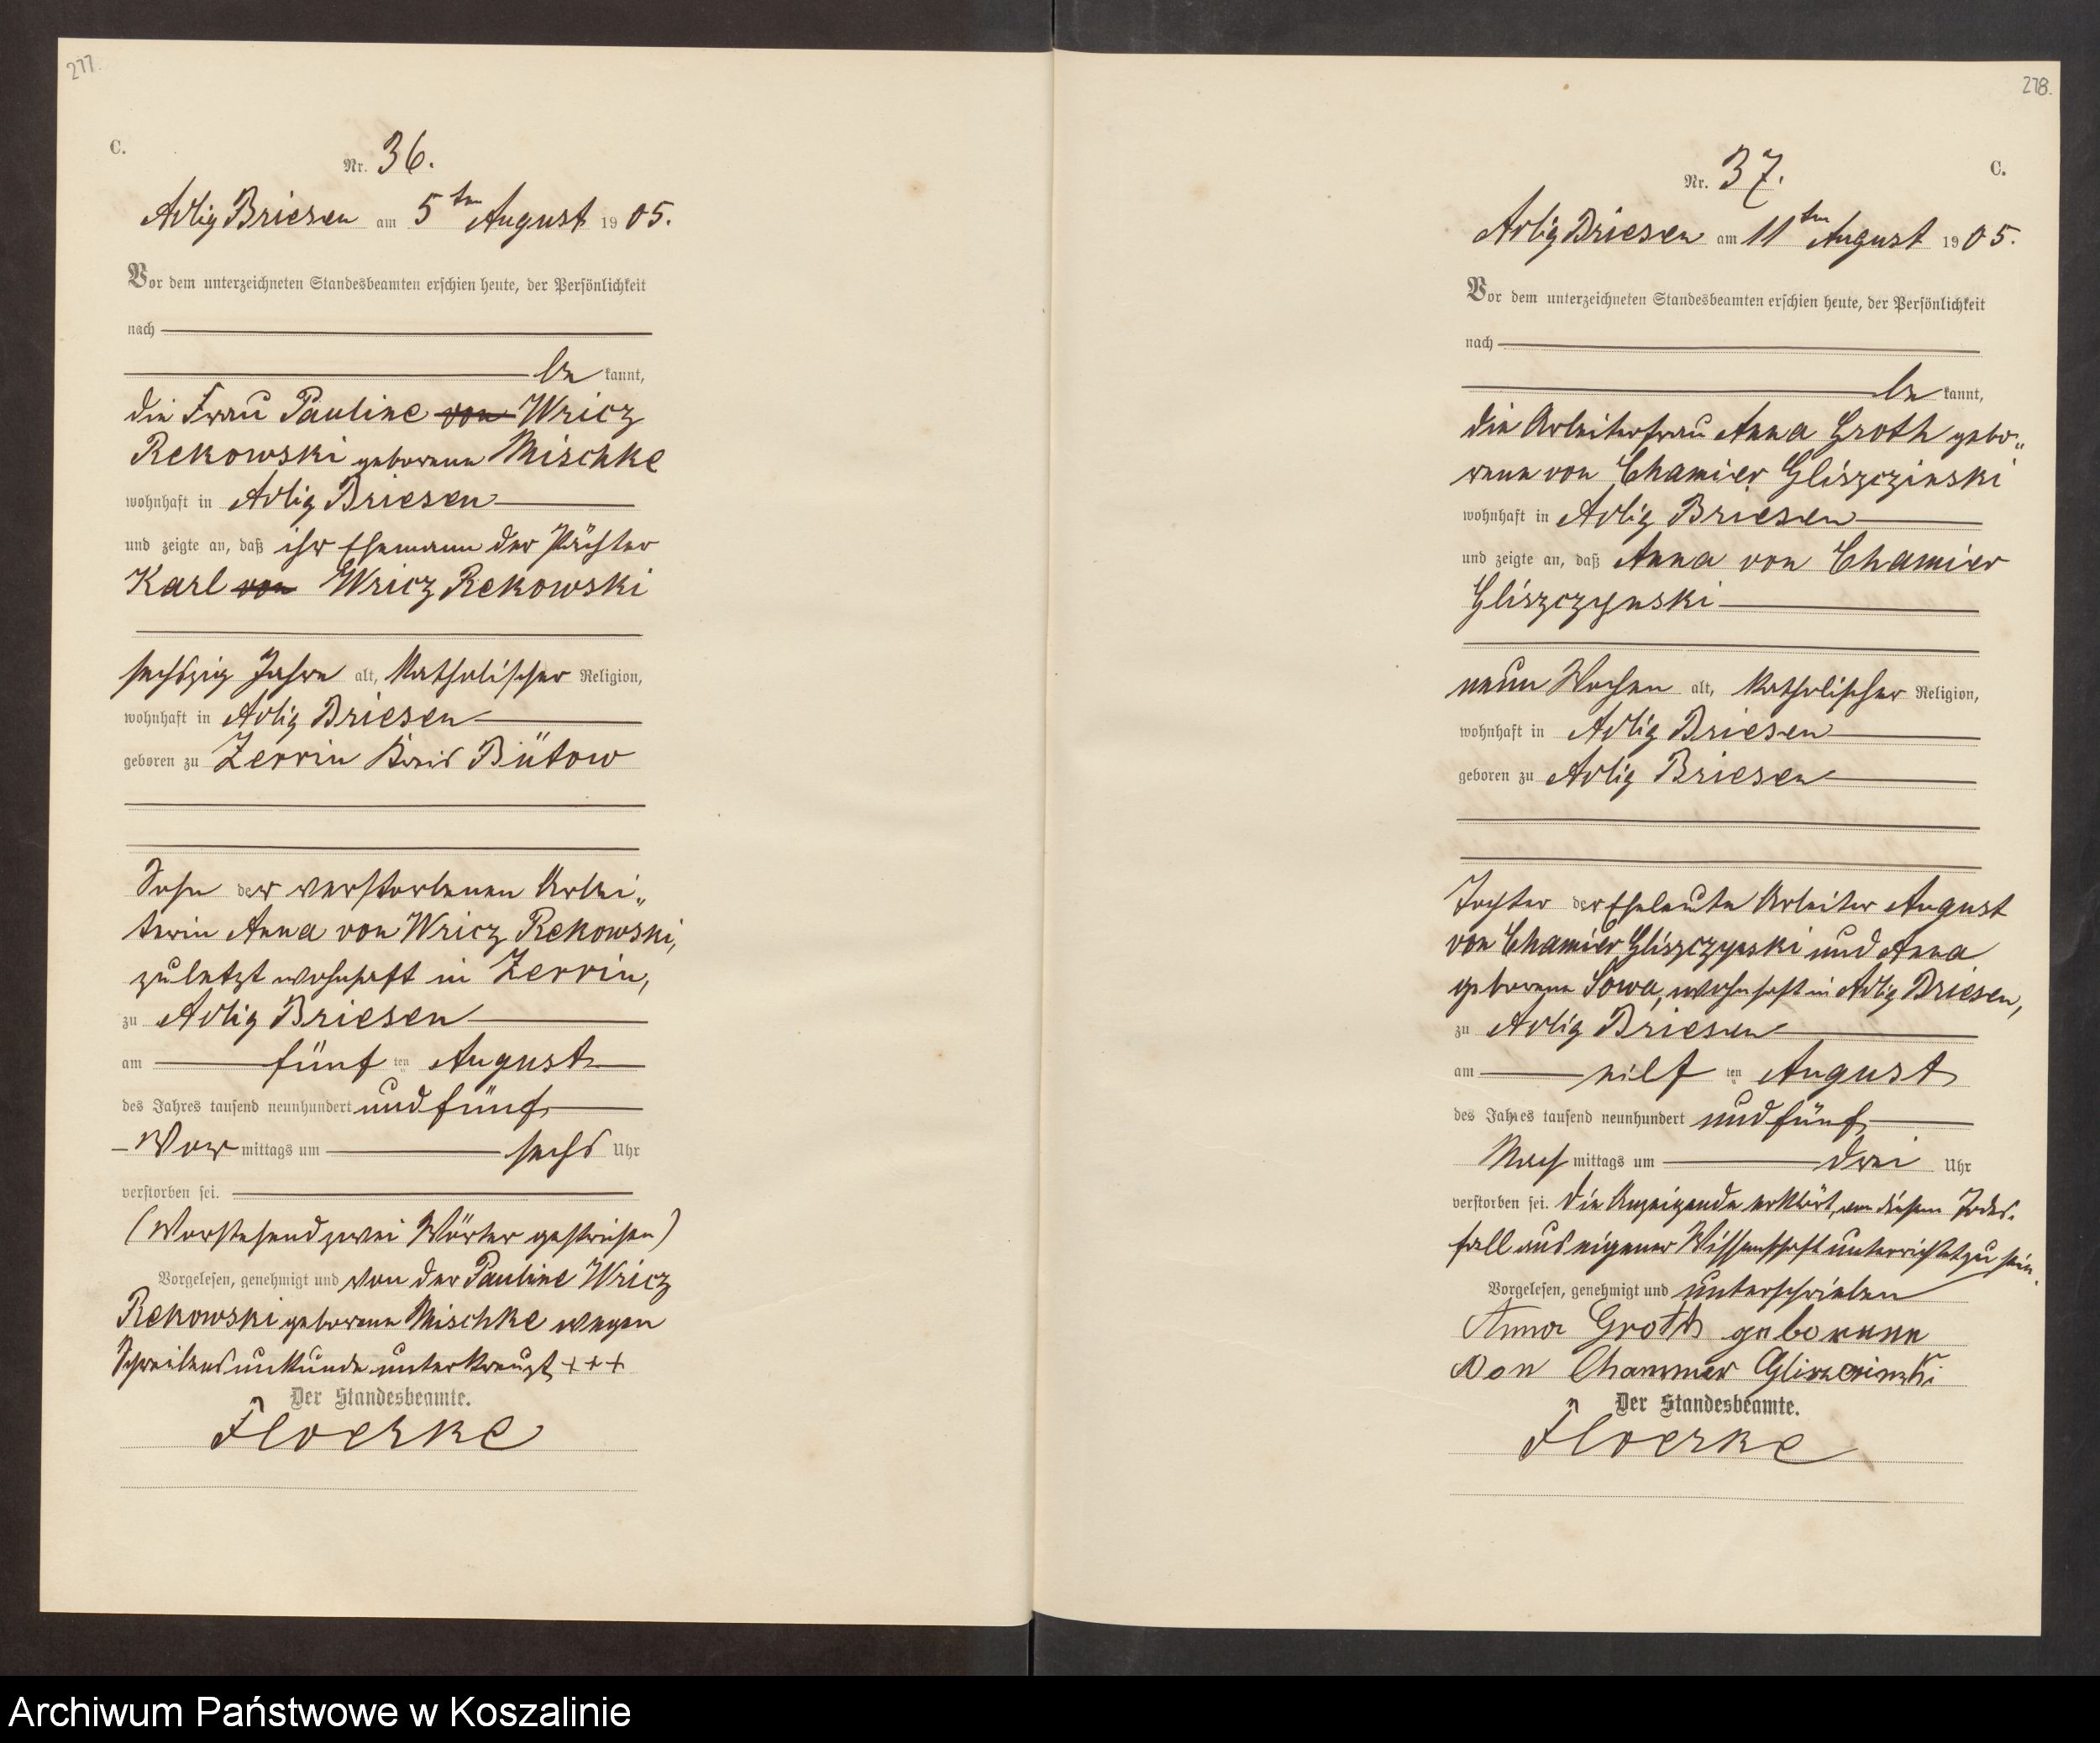 277.
C.
Nr. 36.
Adlig Briesen am 5ten August 1905.
Vor dem unterzeichneten Standesbeamten erschien heute, der Persönlichkeit
nach
be kannt,
die Frau Pauline von Wricz
Rekowski geborene Mischke
wohnhaft in Adlig Briesen
und zeigte an, daß ihr Ehemann der Pächter
Karl von Wricz Rekowski
sechszig Jahre alt, katholischer Religion,
wohnhaft in Adlig Briesen
geboren zu Zerrin Kreis Bütow
Sohn der verstorbenen Arbei„
terin Anna von Wricz Rekowski,
zuletzt wohnhaft in Zerrin,
zu Adlig Briesen
am fünf ten August
des Jahres tausend neunhundert und fünf
Vor mittags um sechs Uhr
verstorben sei.
(Vorstehend zwei Wörter gestrichen)
Vorgelesen, genehmigt und von der Pauline Wricz
Rekowski geborene Mischke wegen
Schreibensunkunde unterkreuzt +++
Der Standesbeamte.
Floerke
278.
C.
Nr. 37.
Adlig Briesen am 11ten August 1905.
Vor dem unterzeichneten Standesbeamten erschien heute, der Persönlichkeit
nach
be kannt,
die Arbeiterfrau Anna Groth gebo„
rene von Chamier Gliszczinski
wohnhaft in Adlig Briesen
und zeigte an, daß Anna von Chamier
Gliszczynski
neun Wochen alt, katholischer Religion,
wohnhaft in Adlig Briesen
geboren zu Adlig Briesen
Tochter der Eheleute Arbeiter August
von Chamier Gliszczynski und Anna
geborene Sowa, wohnhaft in Adlig Briesen,
zu Adlig Briesen
am eilf ten August
des Jahres tausend neunhundert und fünf
Nach mittags um drei Uhr
verstorben sei. Die Anzeigende erklärt, von diesem Todes-
fall aus eigener Wissenschaft unterrichtet zu sein.
Vorgelesen, genehmigt und unterschrieben
Anna Groth geborene
von Chammer
Der Standesbeamte.
Floerke
Archiwum Państwowe w Koszalinie